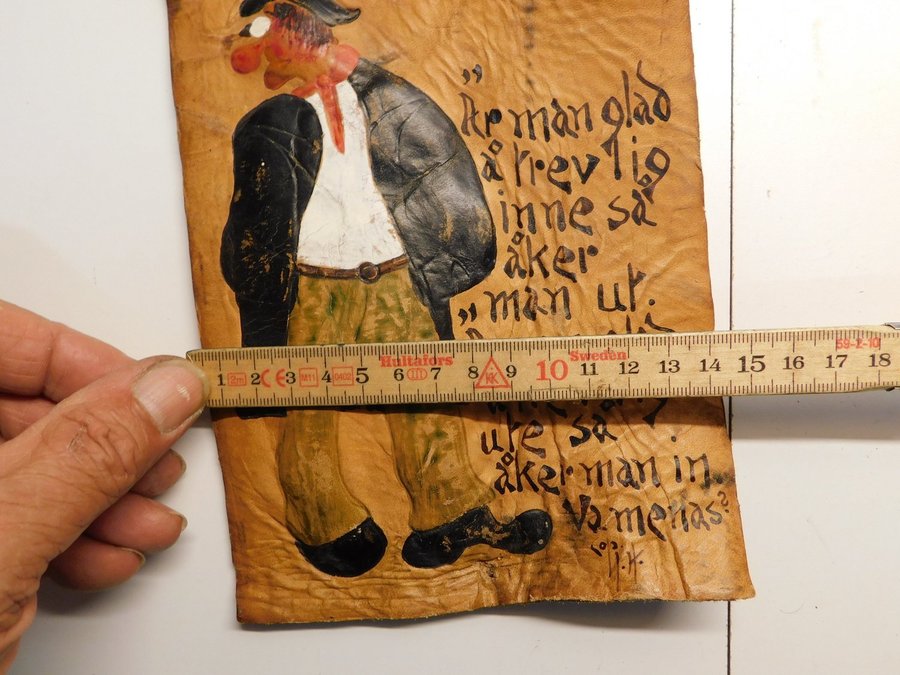 "Är man glad
å trevlig
inne så
åker
"man ut.
ute så
åker man in.
Va menas?
1 2m 2 CE 3 M11 4 0402 5 6 7 Hultafors 8 KK 9 10 Sweden 11 12 13 14 15 16 17 18 59-2-10